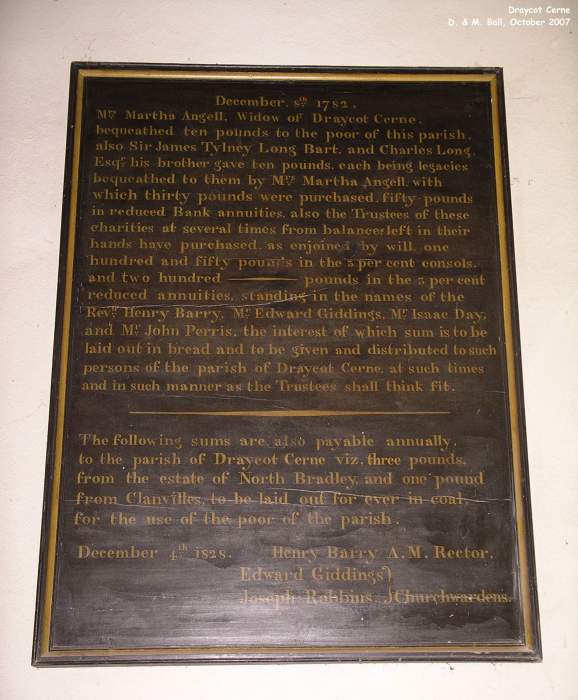 Draycot Cerne
D. & M. Ball, October 2007
December, 8th 1782.
Mrs Martha Angell, Widow of Draycot Cerne,
bequeathed ten pounds to the poor of this parish,
also Sir James Tylney Long Bart, and Charles Long,
Esqr his brother gave ten pounds, each being legacies
bequeathed to them by Mrs Martha Angell, with
which thirty pounds were purchased, fifty pounds
in reduced Bank annuities, also the Trustees of these
charities at several times from balances left in their
hands have purchased, as enjoined by will, one
hundred and fifty pounds in the 3 per cent consols,
and two hundred ——— pounds in the 3 per cent
reduced annuities, standing in the names of the
Revd Henry Barry, Mr Edward Giddings, Mr Isaac Day,
and Mr John Perris, the interest of which sum is to be
laid out in bread and to be given and distributed to such
persons of the parish of Draycot Cerne, at such times
and in such manner as the Trustees shall think fit.
The following sums are also payable annually,
to the parish of Draycot Cerne viz. three pounds,
from the estate of North Bradley, and one pound
from Clanvilles, to be laid out for ever in coal,
for the use of the poor of the parish.
December 4th 1828. Henry Barry A.M. Rector,
Edward Giddings }
Joseph Robbins, } Churchwardens.